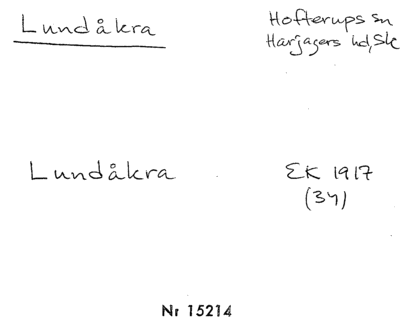 Lundåkra
Hofterups sn
Harjagers hd, Sk
Lundåkra
EK 1917
(34)
Nr 15214